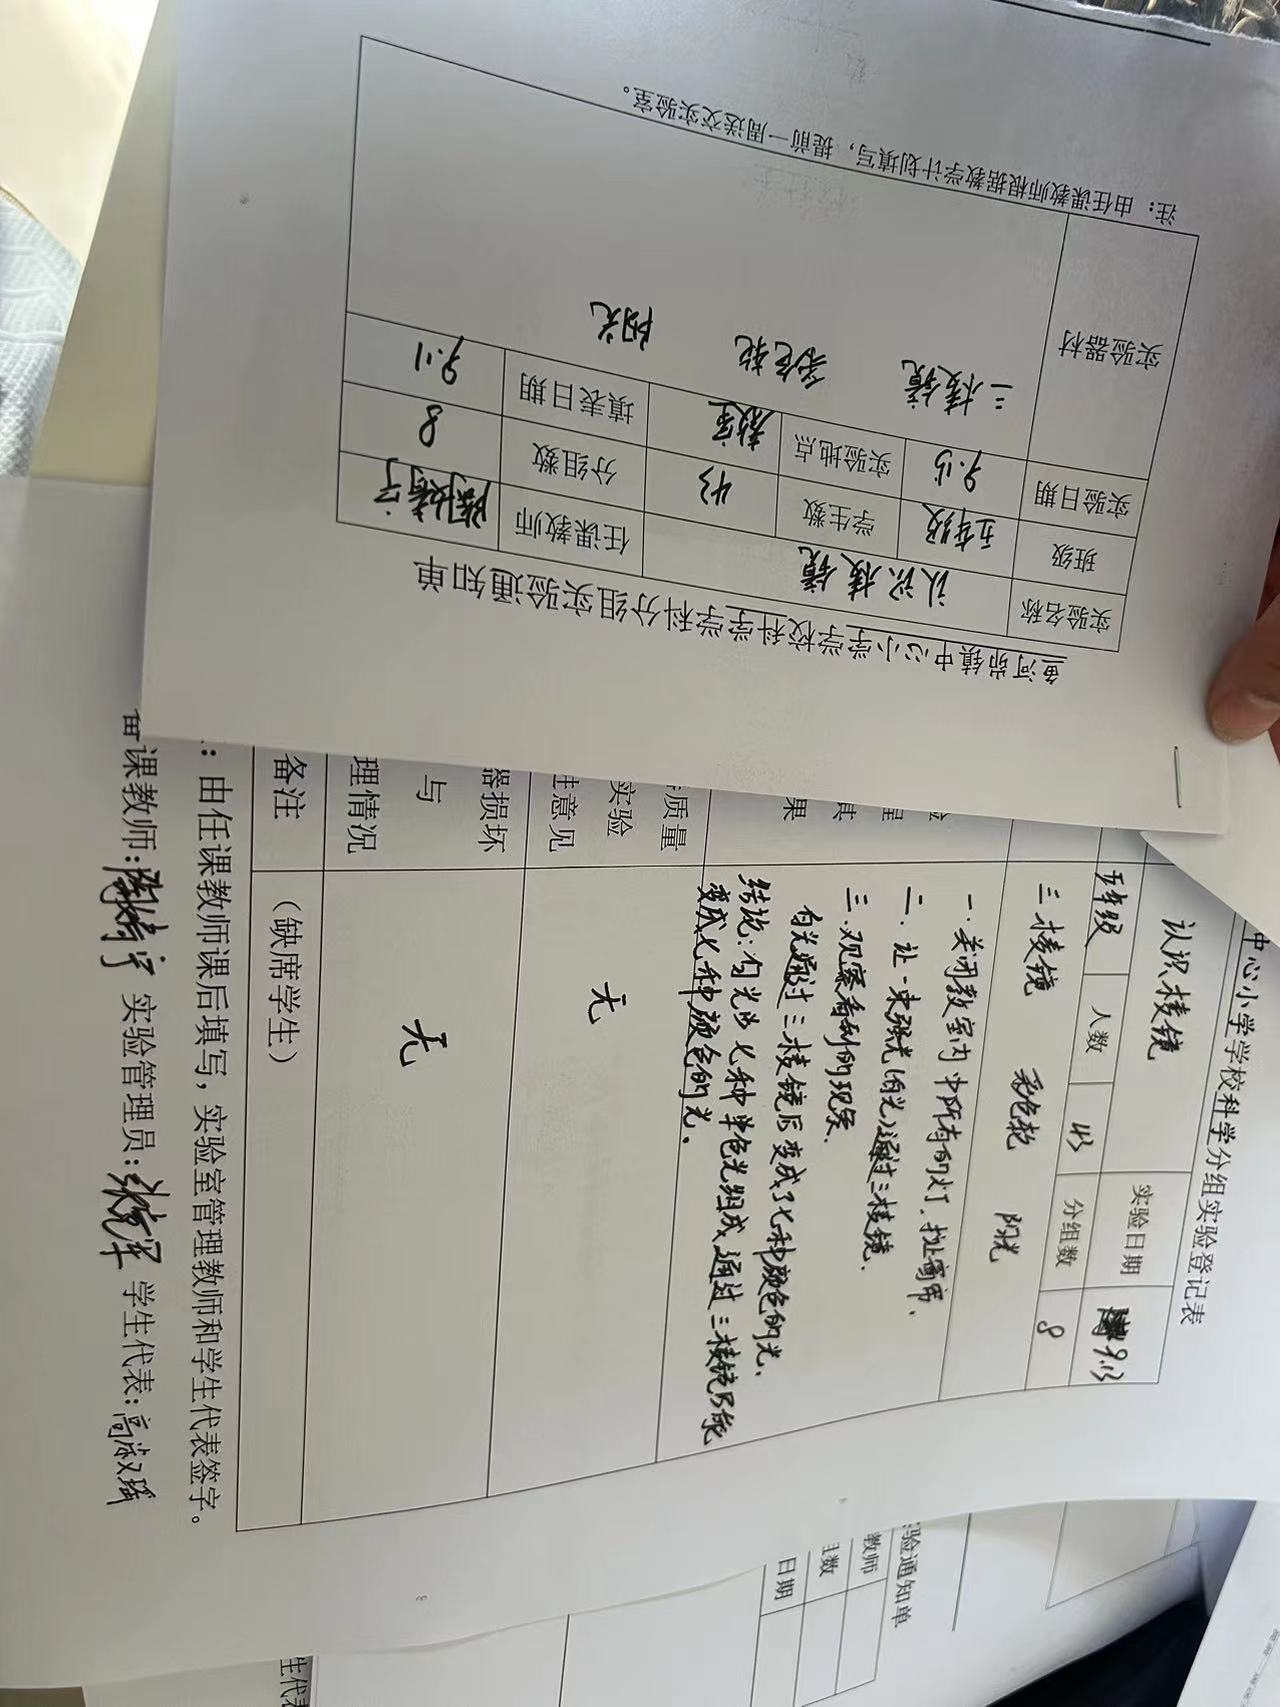 鱼河峁镇中心小学学校科学学科分组实验通知单
实验名称 认识棱镜 任课教师
班级 五年级 学生数 43 分组数 8
实验日期 9.15 实验地点 教室 填表日期 9.11
实验器材 三棱镜 彩色轮 阳光
注：由任课教师根据教学计划填写，提前一周送交实验室。
中心小学学校科学分组实验登记表
认识棱镜 实验日期
五年级 人数 43 分组数 8
三棱镜 彩色轮 阳光
一.关闭教室内中所有的灯.拉上窗帘.
二.让一束强光(白光)通过三棱镜.
三.观察看到的现象.
果 白光通过三棱镜后变成了七种颜色的光.
结论:白光由七种单色光组成,通过三棱镜后能
变成七种颜色的光.
质量
实验
意见 无
器损坏
与
理情况 无
备注 （缺席学生）
：由任课教师课后填写，实验室管理教师和学生代表签字。
备课教师: 实验管理员: 学生代表:
实验通知单
教师
组数
日期
生代表